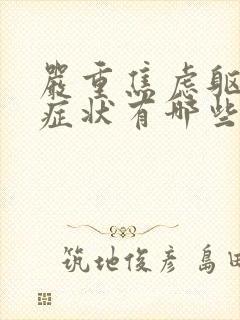 嚴重焦虑躯
症状有哪些
筑地俊彦 島田